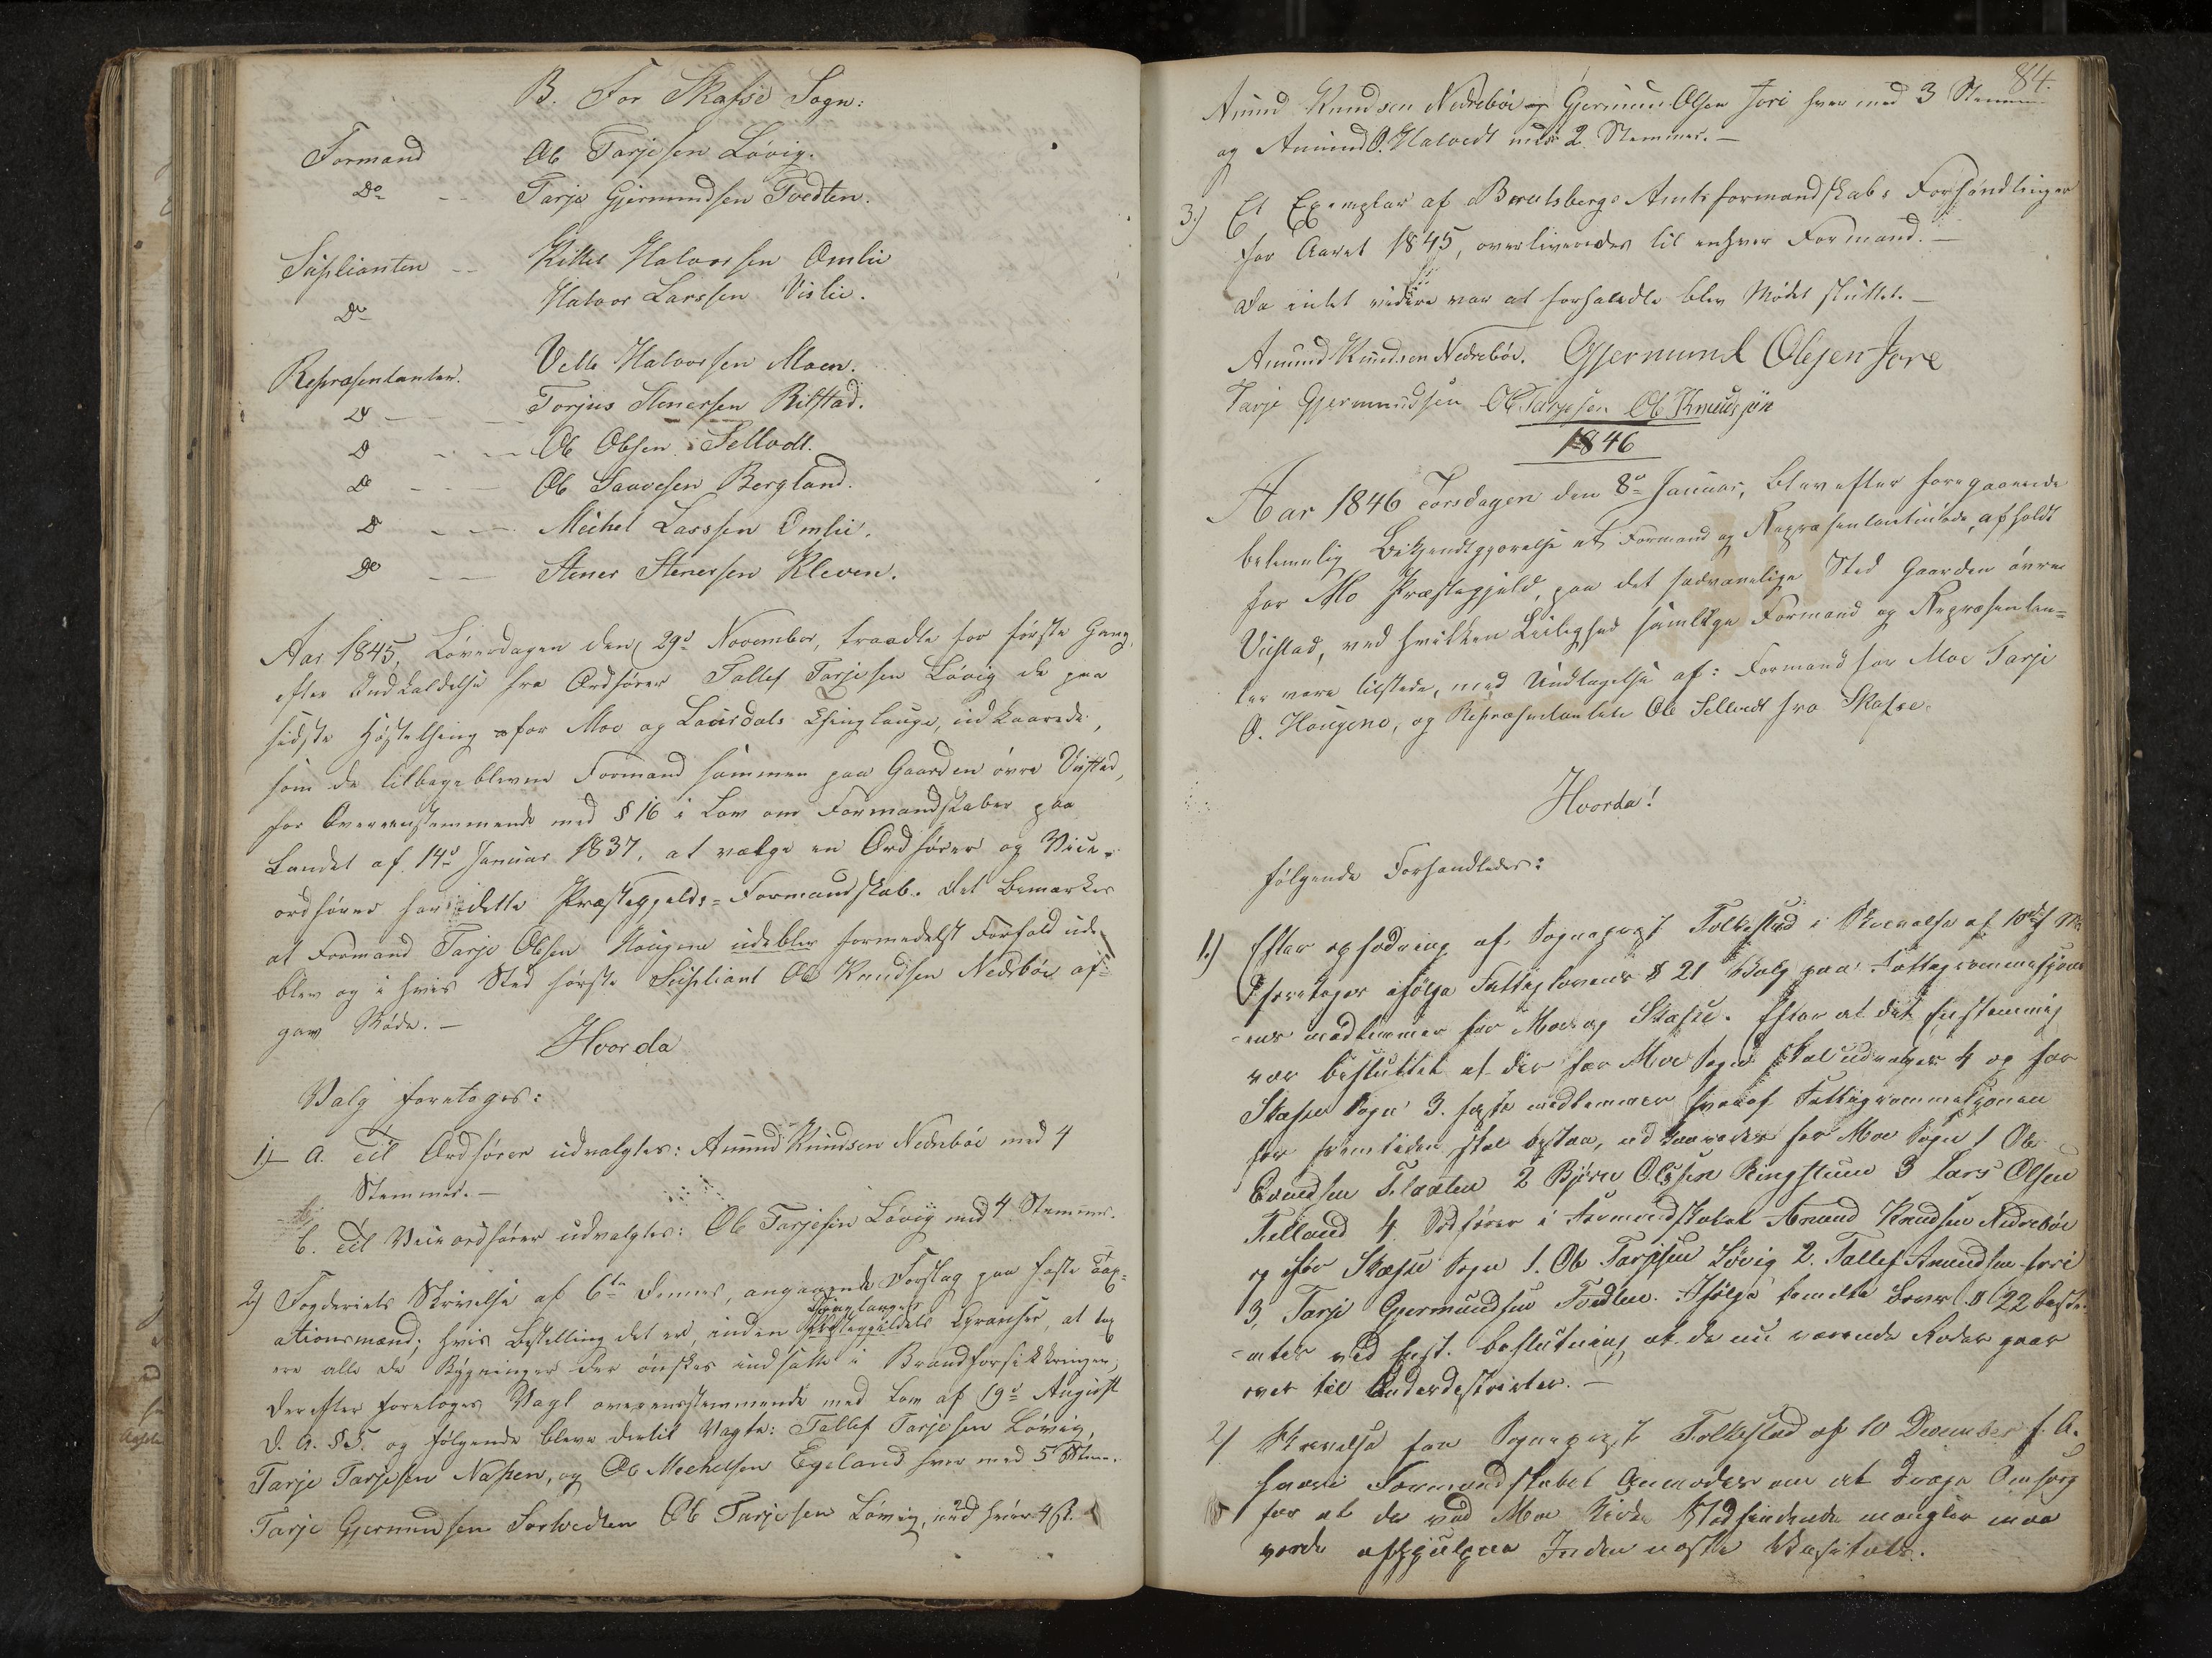 B. For Skafse Sogn:
Formand Ole Tarjesen Løvig.
Do - - Tarje Gjermundsen Tvedten.
Suplianten - - Kittel Halvorsen Omlie
Do Halvor Larssen Vislie.
Repræsentanter. Vetle Halvorsen Moen.
D - - Torjus Stenersen Ritstad.
D - - - Ole Olsen Sellvedt.
D - - - Ole Saavesen Bergland.
D - - - Michel Larssen Omlie.
Do - - Stener Stenersen Kleven.
Aar 1845, Løverdagen den 29d November, traadte for første Gang,
efter Indkaldelse fra Ordfører Tallef Tarjesen Løvig de paa
sidste Høstething for Moe og Laurdals Thinglauge, udkaarede,
som de tilbageblevne Formænd sammen paa Gaarden øvre Vistad,
for Overeenstemmende med § 16 i Lov om Formandskaber paa
Landet af 14d Januar 1837, at vælge en Ordfører og Vice-
ordfører for dette Præstegjelds-Formandskab. Det bemærkes
at Formand Tarje Olsen Haugene udeblev formedelst Forfald ude
blev og i hvis Sted første Supliant Ole Knudsen Nedrebøe af-
gav Møde. —
Hvorda
Valg foretoges:
1) a. Til Ordfører udvalgtes: Amund Knudsen Nedrebøe med 4
Stemmer. —
b. Til Viceordfører udvalgtes: Ole Tarjesen Løvig med 4 Stemmer.
2) Fogderiets Skrivelse af 6te dennes, angaaende Forslag paa faste Tax-
ationsmænd; hvis Bestilling det er, inden Thinglaugets Grændser, at tax
ere alle de Bygninger der ønskes indsatte i Brandforsikkringen,
derefter foretoges Valg overeensstemmende med Lov af 19d August
d. A. § 5. og følgende bleve dertil Valgte: Tallef Tarjesen Løvig,
Tarje Tarjesen Næsen, og Ole Mechelsen Egeland hver med 5 Stem.
Tarje Gjermundsen Sortvedten Ole Tarjesen Løvig, med hver 4 St.
84.
Amund Knudsen Nedrebøe og Gjermund Olsen Jore hver med 3 Stemmer
og Amund O. Halvedt med 2 Stemmer. —
3.) Et Exemplar af Bratsbergs Amtsformandskabs Forhandlinger
for Aaret 1845, overleveredes til enhver Formand. —
Da intet videre var at forhandle blev Mødet sluttet. —
Amund Knudsen Nedrebøe. Gjermund Olesen Jore
Tarje Gjermundsen Ole Tarjesen Ole Knudsøn
1846
Aar 1846 Torsdagen den 8de Januar, blev efter foregaaende
betimelig Bekjendtgjørelse et Formand og Repræsentantmøde, afholdt
for Mo Præstegjeld, paa det sædvanelige Sted Gaarden øvre
Vistad, ved hvilken Leilighed samtlige Formænd og Repræsentan-
ter vare tilstede, med Undtagelse af: Formand for Moe Tarje
O. Haugene, og Repræsentanten Ole Sellvedt fra Skafse.
Hvorda!
følgende Forhandledes:
1.) Efter opfodring af Sognepræst Folkestad i Skrivelse af 10de f. M.
foretoges ifølge Fattiglovens § 21 Valg paa Fattigcommissjon-
ens medlemmer for Moe og Skafse. Efter at det Eenstemmig
var besluttet at der for Moe Sogn skal udvælges 4 og for
Skafse Sogn 3. faste medlemmer hvoraf Fattigcommissjonen
for fremtiden skal bestaa, udkaaredes for Moe Sogn 1 Ole
Evendsen Flaaten 2 Bjørn Olssen Ringhuus 3 Lars Olsen
Felland 4. Ordfører i Formandskabet Amund Knudsen Nedrebøe
og for Skafse Sogn 1. Ole Tarjesen Løvig 2. Tallef Amundsen Jore
3. Tarje Gjermundsen Tvedten. Ifølge samme Lovs § 22 beste-
mtes ved Enst. beslutning, at de nu værende Roder gaar
over til Underdestrikter. —
2) Skrivelse fra Sognepræst Folkestad af 10 December f. A.
hvori Formandskabet Anmodes om at drage Omsorg
for at de ved Moe Kirke Stedfindende mangler maa
vorde afhjulpne Inden næste Visitats.